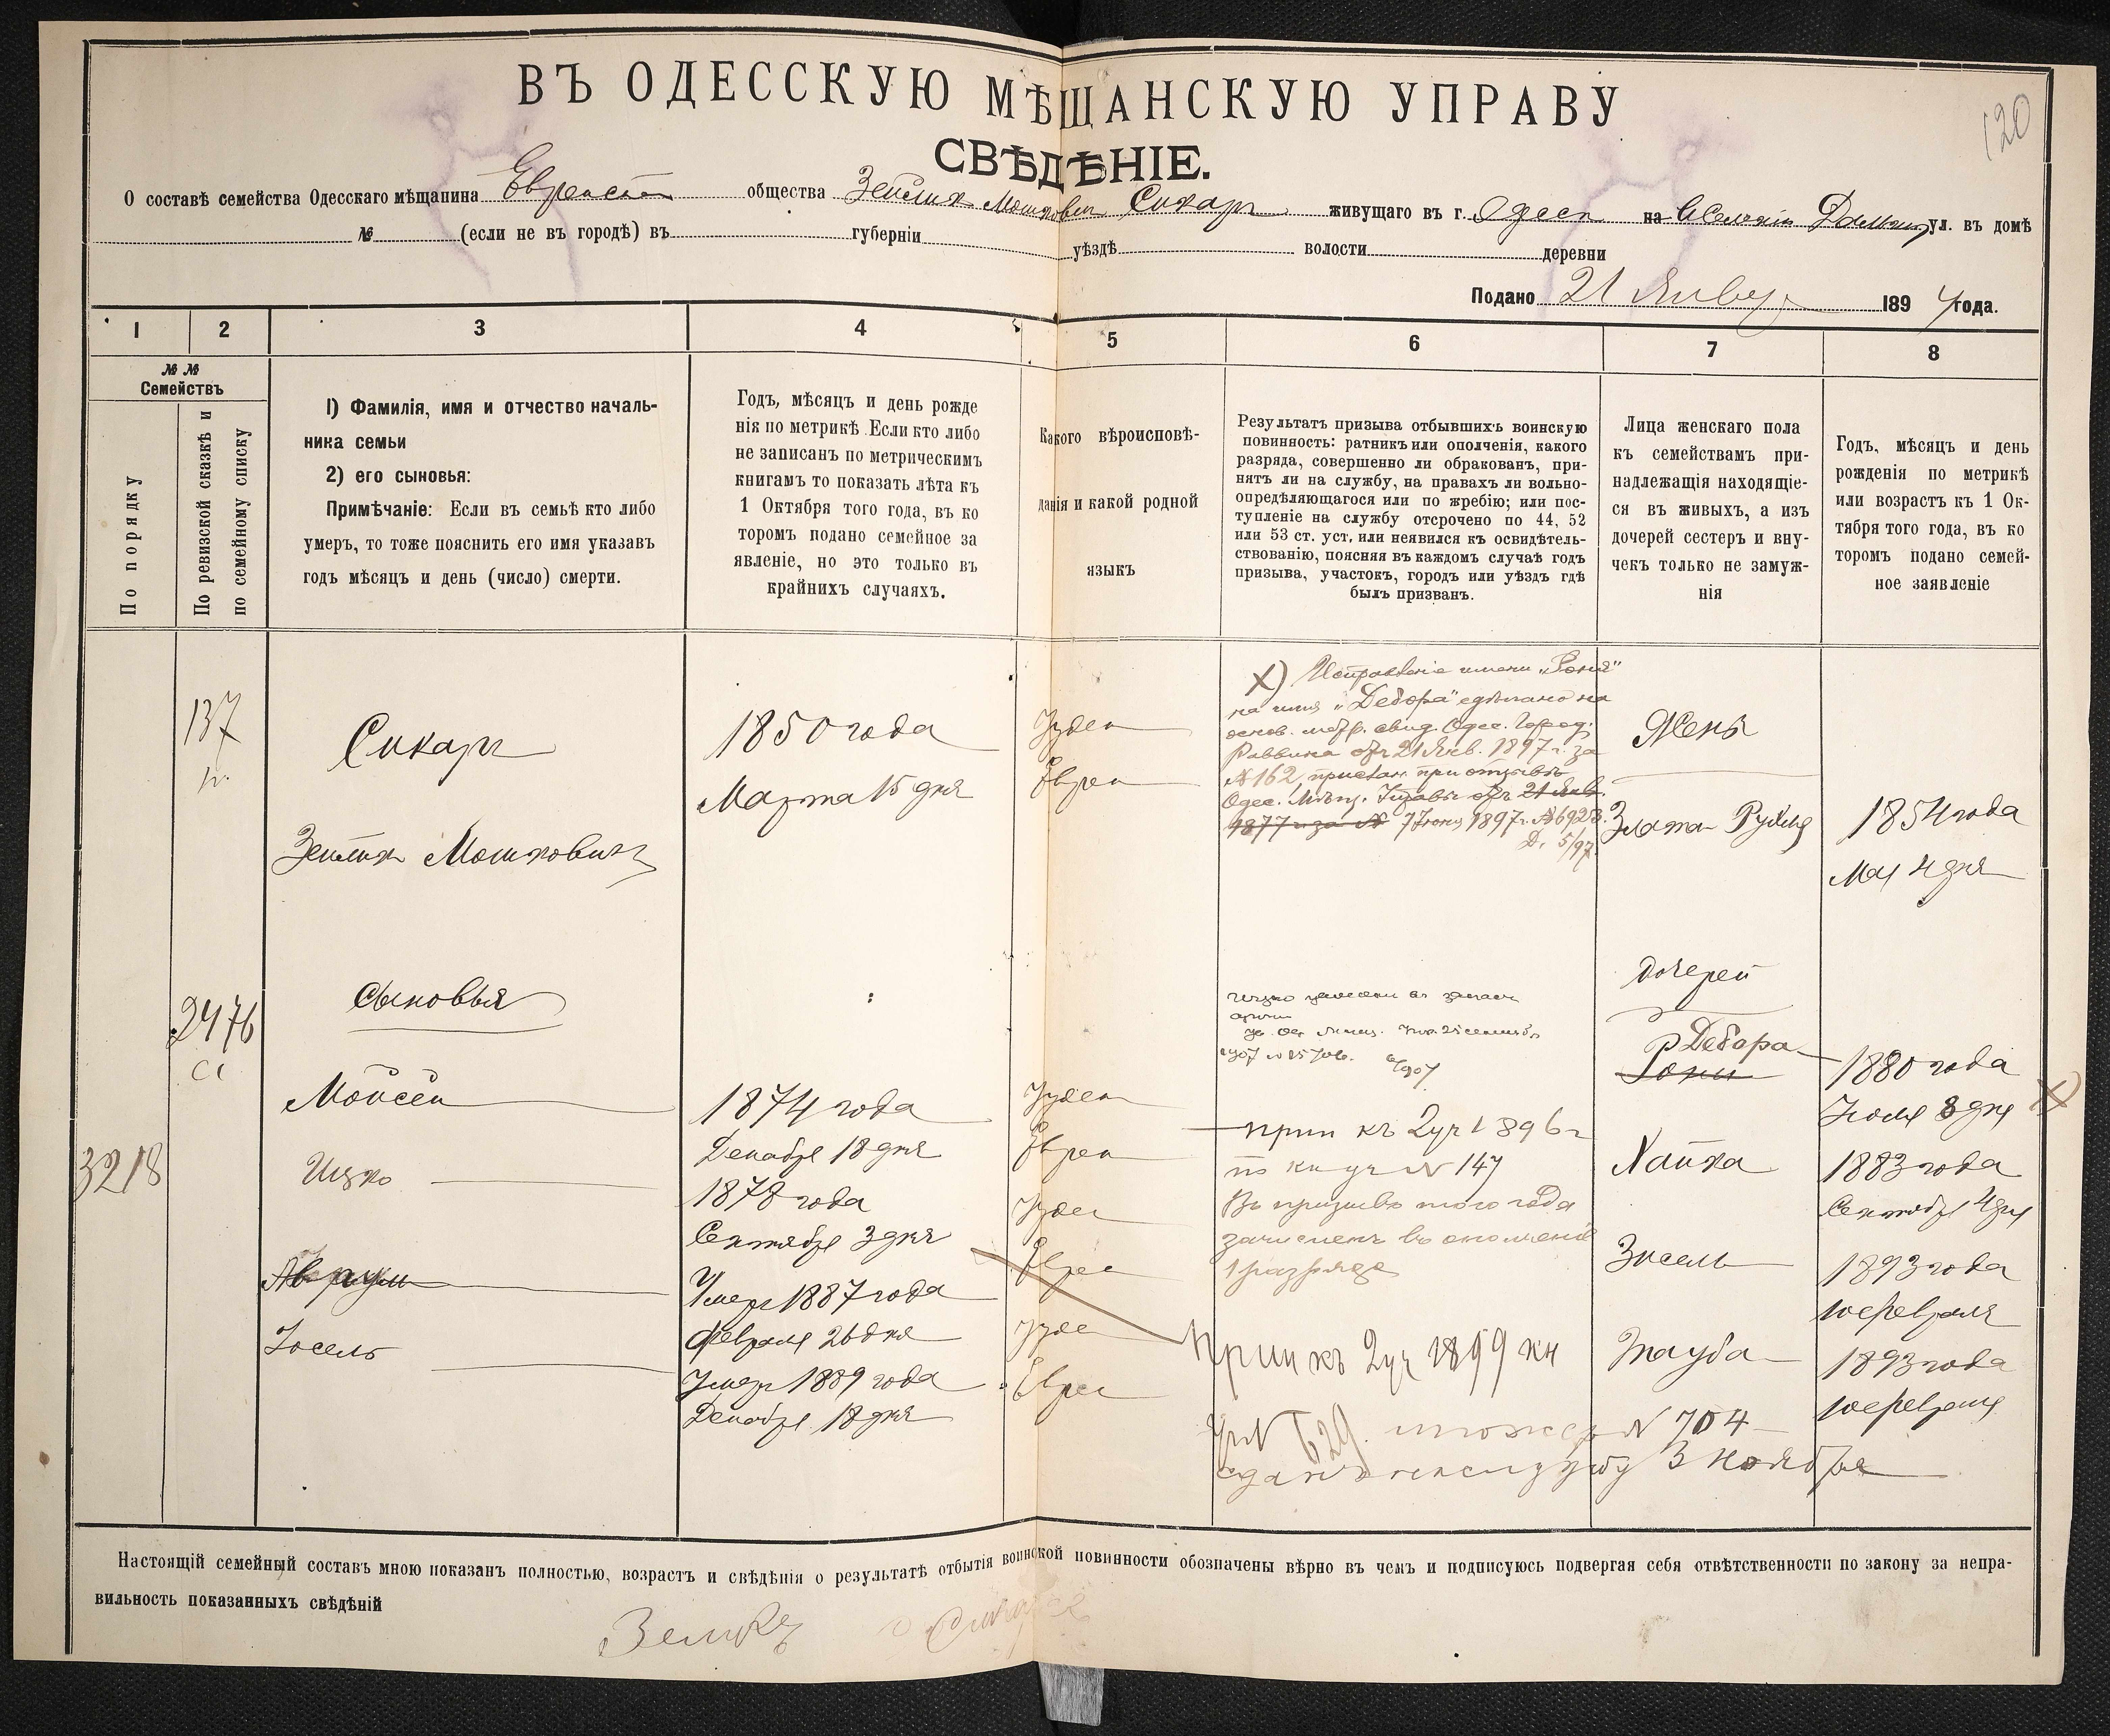 ВЪ ОДЕССКУЮ МѢЩАНСКУЮ УПРАВУ
120
СВѢДѢНІЕ.
О составѣ семейства Одесскаго мѣщанина Еврейск общества Зейлик Мошкович Сикар живущаго въ г. Одесс на ул. въ домѣ
№ (если не въ городѣ) въ губерніи уѣздѣ волости деревни
Подано 21 Январ 1894 года.
1 2 3 4 5 6 7 8
№ №
Семействъ
По порядку
По ревизской сказкѣ и
по семейному списку
1) Фамилія, имя и отчество началь-
ника семьи
2) его сыновья:
Примѣчаніе: Если въ семьѣ кто либо
умеръ, то тоже пояснить его имя указавъ
годъ мѣсяцъ и день (число) смерти.
Годъ, мѣсяцъ и день рожде
нія по метрикѣ. Если кто либо
не записанъ по метрическимъ
книгамъ то показать лѣта къ
1 Октября того года, въ ко
торомъ подано семейное за
явленіе, но это только въ
крайнихъ случаяхъ.
Какого вѣроисповѣ-
данія и какой родной
языкъ
Результатъ призыва отбывшихъ воинскую
повинность: ратникъ или ополченія, какого
разряда, совершенно ли обракованъ, при-
нятъ ли на службу, на правахъ ли вольно-
опредѣляющагося или по жребію; или пос-
тупленіе на службу отсрочено по 44, 52
или 53 ст. уст. или неявился къ освидѣтель-
ствованію, поясняя въ каждомъ случаѣ годъ
призыва, участокъ, городъ или уѣздъ гдѣ
былъ призванъ.
Лица женскаго пола
къ семействамъ при-
надлежащія находящіе-
ся въ живыхъ, а изъ
дочерей сестеръ и вну-
чекъ только не замуж-
нія
Годъ, мѣсяцъ и день
рожденія по метрикѣ
или возрастъ къ 1 Ок-
тября того года, въ ко
торомъ подано семей-
ное заявленіе
137
Сикар
Зейлик Мошковичъ
1850 года
Марта 15 дня
Іудей
Еврей
X) Исправленіе имени „Роня"
на имя „Дебора" сдѣлано на
основ. метр. свид. Одес. Город.
Раввина отъ 21 Янв. 1897 г. за
№ 162, при отзывѣ
Одес. Мѣщ. Управы отъ 21 Янв.
1877 г. за № 7 Іюня 1897 г. № 6923.
Д. 5/97.
Жена
Злата Рухля
1854 года
Мая 4 дня
2476
3218
Сыновья
Мойсей
1874 года
Декабря 18 дня
Іудей
Еврей
Ицко
1878 года
Сентября 3 дня
Іудей
Еврей
Аврум
Умеръ 1887 года
Февраля 26 дня
Іосель
Умеръ 1889 года
Декабря 18 дня
Іудей
Еврей
Ицко зачислен в запас
армии
1907
прип къ 2 уч 1896 г
по кн уч № 147
Въ призывѣ того года
зачисленъ въ ополченіе
1 разряда
Прип къ 2 уч 1899 кн
уч № 629. № 704
сданъ на службу 3 Ноября
дочерей
Дебора
Роня
1880 года
Іюля 8 дня
X)
Хайка
1883 года
Сентября 4 дня
Зисель
1893 года
10 февраля
Тауба
1893 года
10 февраля
Настоящій семейный составъ мною показанъ полностью, возрастъ и свѣдѣнія о результатѣ отбытія воинской повинности обозначены вѣрно въ чемъ и подписуюсь подвергая себя отвѣтственности по закону за непра-
вильность показанныхъ свѣдѣній